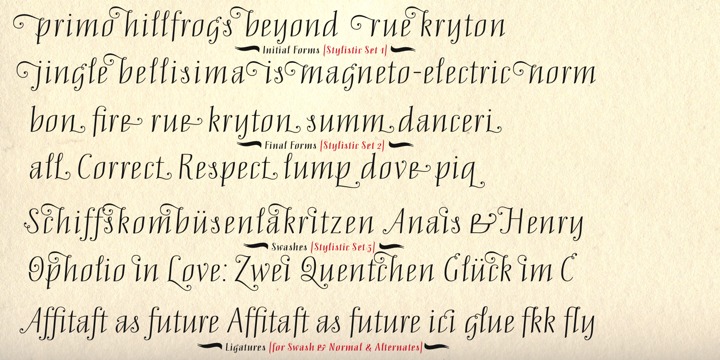 primo hillfrogs beyond rue kryton
Initial Forms [Stylistic Set 1]
jingle bellisima is magneto-electric norm
bon fire rue kryton summ danceri
Final Forms [Stylistic Set 2]
all Correct Respect lump dove piq
Schiffskombüsenlakritzen Anais & Henry
Swashes [Stylistic Set 3]
Opholio in Love: Zwei Quentchen Glück im C
Affitaft as future Affitaft as future ici glue fkk fly
Ligatures [for Swash & Normal & Alternates]